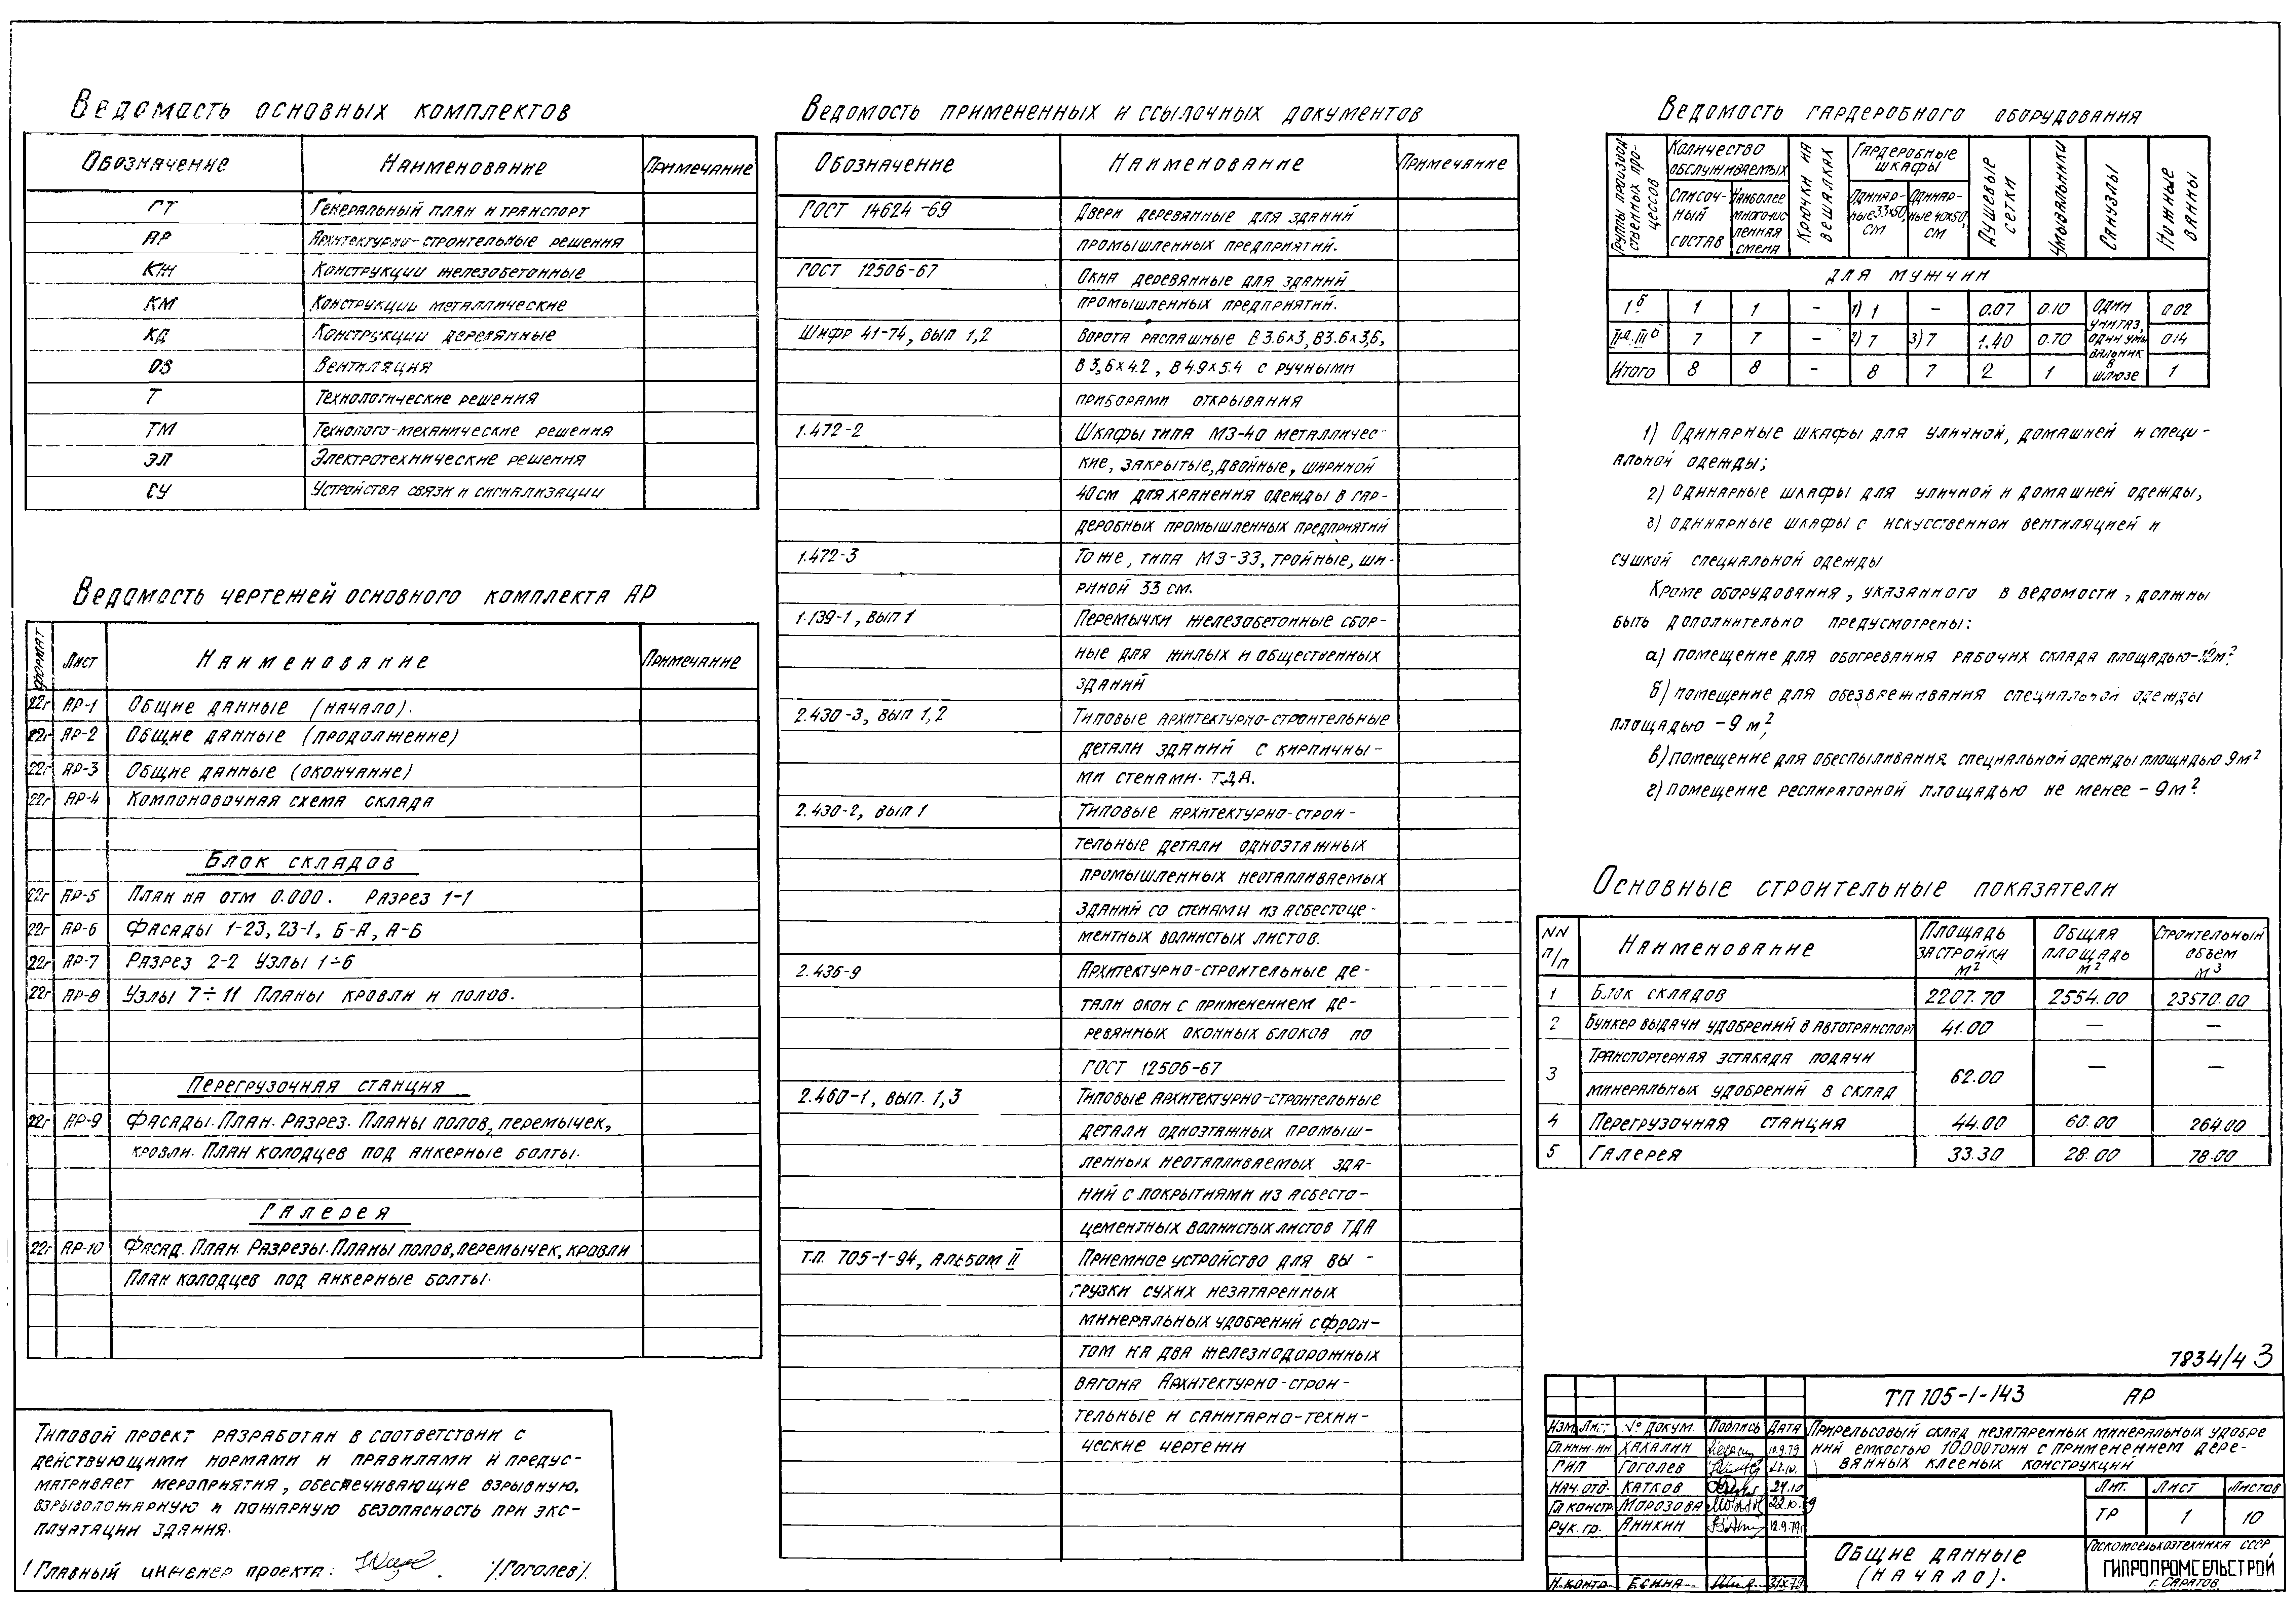 Ведомость основных комплектов
Обозначение Наименование Примечание
ГТ Генеральный план и транспорт
АР Архитектурно-строительные решения
КЖ Конструкции железобетонные
КМ Конструкции металлические
КД Конструкции деревянные
ОВ Вентиляция
Т Технологические решения
ТМ Технолого-механические решения
ЭЛ Электротехнические решения
СУ Устройства связи и сигнализации
Ведомость чертежей основного комплекта АР
Формат Лист Наименование Примечание
22г АР-1 Общие данные (начало).
22г АР-2 Общие данные (продолжение)
22г АР-3 Общие данные (окончание)
22г АР-4 Компоновочная схема склада
Блок складов
22г АР-5 План на отм 0.000. Разрез 1-1
22г АР-6 Фасады 1-23, 23-1, Б-А, А-Б
22г АР-7 Разрез 2-2 Узлы 1÷6
22г АР-8 Узлы 7÷11 Планы кровли и полов.
Перегрузочная станция
22г АР-9 Фасады. План. Разрез. Планы полов, перемычек,
кровли. План колодцев под анкерные болты.
Галерея
22г АР-10 Фасад. План. Разрезы. Планы полов, перемычек, кровли
План колодцев под анкерные болты.
Типовой проект разработан в соответствии с
действующими нормами и правилами и предус-
матривает мероприятия, обеспечивающие взрывную,
взрывопожарную и пожарную безопасность при экс-
плуатации здания.
Главный инженер проекта: /Гоголев/.
Ведомость примененных и ссылочных документов
Обозначение Наименование Примечание
ГОСТ 14624-69 Двери деревянные для зданий
промышленных предприятий.
ГОСТ 12506-67 Окна деревянные для зданий
промышленных предприятий.
Шифр 41-74, вып 1,2 Ворота распашные В 3.6х3, В3.6х3,6,
В 3,6х4.2, В 4.9х5.4 с ручными
приборами открывания
1.472-2 Шкафы типа МЗ-40 металличес-
кие, закрытые, двойные, шириной
40см для хранения одежды в гар-
деробных промышленных предприятий
1.472-3 То же, типа МЗ-33, тройные, ши-
риной 33 см.
1.139-1, вып 1 Перемычки железобетонные сбор-
ные для жилых и общественных
зданий
2.430-3, вып 1,2 Типовые архитектурно-строительные
детали зданий с кирпичны-
ми стенами. ТДА.
2.430-2, вып 1 Типовые архитектурно-строи-
тельные детали одноэтажных
промышленных неотапливаемых
зданий со стенами из асбестоце-
ментных волнистых листов.
2.436-9 Архитектурно-строительные де-
тали окон с применением де-
ревянных оконных блоков по
ГОСТ 12506-67
2.460-1, вып. 1,3 Типовые архитектурно-строительные
детали одноэтажных промыш-
ленных неотапливаемых зда-
ний с покрытиями из асбесто-
цементных волнистых листов ТДА
Т.П. 705-1-94, альбом II Приемное устройство для вы-
грузки сухих незатаренных
минеральных удобрений с фрон-
том на два железнодорожных
вагона Архитектурно-строи-
тельные и санитарно-техни-
ческие чертежи
Ведомость гардеробного оборудования
Группы производственных процессов Количество обслуживаемых Крючки на вешалках Гардеробные шкафы Душевые сетки Умывальники Санузлы Ножные ванны
Списоч-ный состав Наиболее многочисленная смена Одинар-ные 33х50, см Одинар-ные 40х50, см
для мужчин
1б 1 1 - 1) 1 - 0.07 0.10 один 0.02
унитаз,
IIа, IIIб 7 7 - 2) 7 3) 7 1.40 0.70 один умы 0.14
вальник
в
Итого 8 8 - 8 7 2 1 шлюзе 1
1) Одинарные шкафы для уличной, домашней и специ-
альной одежды;
2) Одинарные шкафы для уличной и домашней одежды,
3) одинарные шкафы с искусственной вентиляцией и
сушкой специальной одежды
Кроме оборудования, указанного в ведомости, должны
быть дополнительно предусмотрены:
а) помещение для обогревания рабочих склада площадью-12м²,
б) помещение для обезвреживания специальной одежды
площадью - 9 м²,
в) помещение для обеспыливания специальной одежды площадью 9м²
г) помещение респираторной площадью не менее - 9м².
Основные строительные показатели
NN п/п Наименование Площадь застройки м² Общая площадь м² Строительный объем м³
1 Блок складов 2207.70 2554.00 23570.00
2 Бункер выдачи удобрений в автотранспорт 41.00 — —
3 Транспортерная эстакада подачи
минеральных удобрений в склад 62.00 — —
4 Перегрузочная станция 44.00 60.00 264.00
5 Галерея 33.30 28.00 78.00
7834/4 3
ТП 705-1-143 АР
Изм Лист № докум. Подпись Дата
Гл.инж.ин. Хахалин 10.9.79
ГИП Гоголев 22.10.
Нач.отд. Катков 24.10
Гл констр. Морозова 22.10.79
Рук.гр. Аникин 12.9.79г
Н.контр. Есина 31.X.79
Прирельсовый склад незатаренных минеральных удобре
ний емкостью 10000тонн с применением дере-
вянных клееных конструкций
Лит. Лист Листов
ТР 1 10
Общие данные
(начало).
Госкомсельхозтехника СССР
ГИПРОПРОМСЕЛЬСТРОЙ
г. Саратов